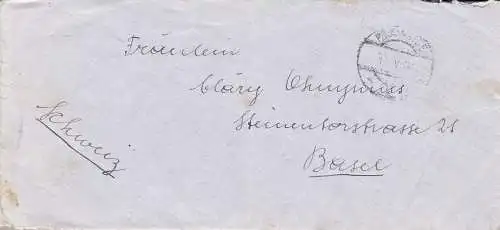 Fräulein
Cläry
Steinentorstrasse 21
Basel
Schweiz